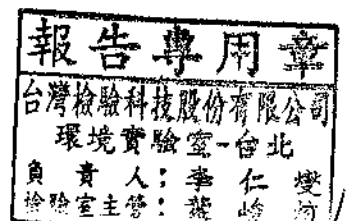 報告專用章
台灣檢驗科技股份有限公司
環境實驗室-台北
負責人:李仁燮
檢驗室主管:龔峻